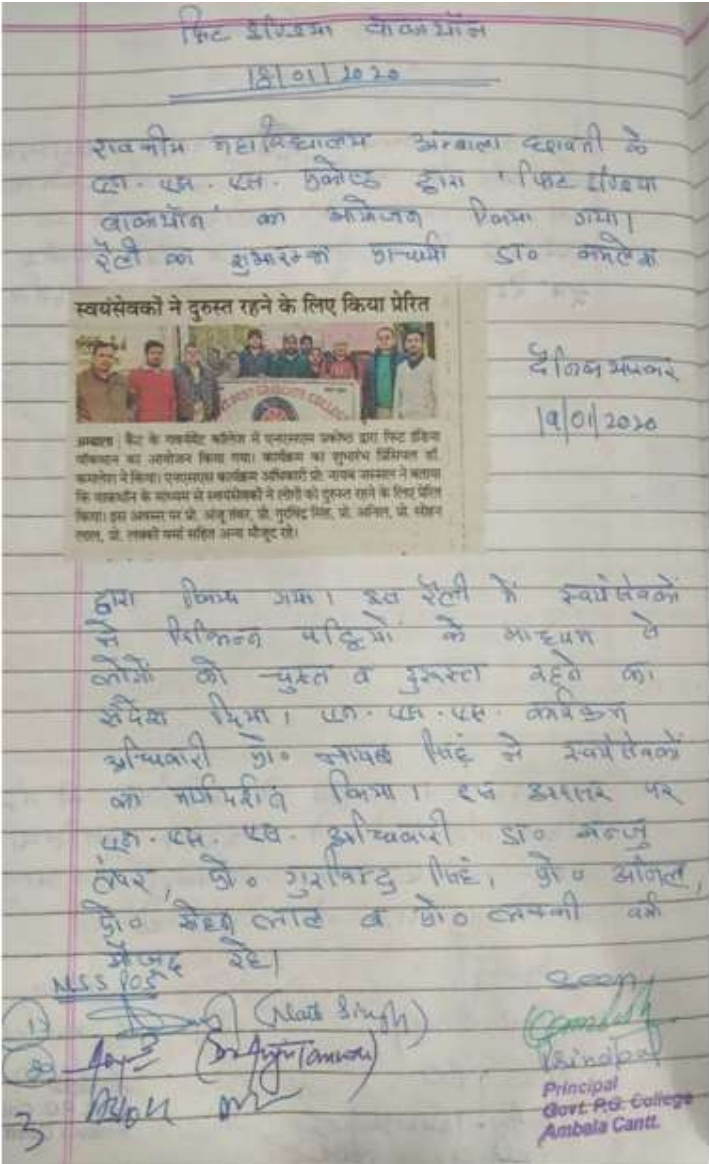 फिट इण्डिया वाकाथॉन
18/01/2020
राजकीय महाविद्यालय अम्बाला छावनी के
एन. एस. एस. प्रकोष्ठ द्वारा 'फिट इण्डिया
वाकाथॉन' का आयोजन किया गया।
रैली का शुभारम्भ प्राचार्या डा० कमलेश
स्वयंसेवकों ने दुरुस्त रहने के लिए किया प्रेरित
अम्बाला | कैंट के गवर्नमेंट कॉलेज में एनएसएस प्रकोष्ठ द्वारा फिट इंडिया
वॉकथान का आयोजन किया गया। कार्यक्रम का शुभारंभ प्रिंसिपल डॉ.
कमलेश ने किया। एनएसएस कार्यक्रम अधिकारी प्रो. नायब ने बताया
कि वाकथॉन के माध्यम से स्वयंसेवकों ने लोगों को दुरुस्त रहने के लिए प्रेरित
किया। इस अवसर पर प्रो. अंजू तंवर, प्रो. गुरविंद्र सिंह, प्रो. अनिल, प्रो. सोहन
लाल, प्रो. लक्की वर्मा सहित अन्य मौजूद रहे।
दैनिक भास्कर
19/01/2020
द्वारा किया गया। इस रैली में स्वयंसेवकों
ने विभिन्न पट्टियों के माध्यम से
लोगों को चुस्त व दुरूस्त रहने का
संदेश दिया। एन. एस. एस. कार्यक्रम
अधिकारी प्रो० नायब सिंह ने स्वयंसेवकों
का मार्गदर्शन किया। इस अवसर पर
एन. एस. एस. अधिकारी डा० अन्जु
तंवर, प्रो० गुरविन्द्र सिंह, प्रो० अनिल,
प्रो० सोहन लाल व प्रो० लक्की वर्मा
मौजूद रहे।
NSS POS
1) (Naib Singh)
2) (Dr Anju Tanwar)
3
Seen
Principal
Principal
Govt. P.G. College
Ambala Cantt.